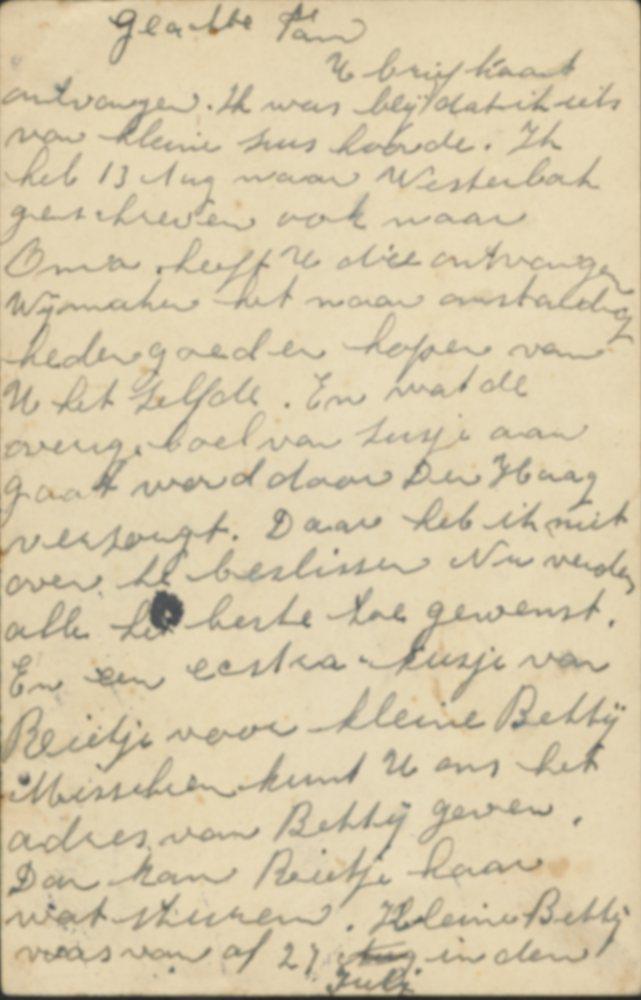 Geachte Fam
U briefkaart
ontvangen. Ik was blij dat ik iets
van kleine sus hoorde. Ik
heb 13 Aug naar Westerbork
geschreven ook naar
Oma. heeft U die ontvangen
Wij maken het naar omstandig
heden goed en hopen van
U het zelfde. En wat de
overige boel van Susje aan
gaat word door Den Haag
verzorgt. Daar heb ik niet
over te beslissen Nu verder
alle het beste toe gewenst.
En een ecstra kusje van
Reietje voor kleine Betty
Misschien kunt U ons het
adres van Betty geven.
Dan kan Reietje haar
wat sturen. Kleine Betty
was van af 27 Aug in den
Juli